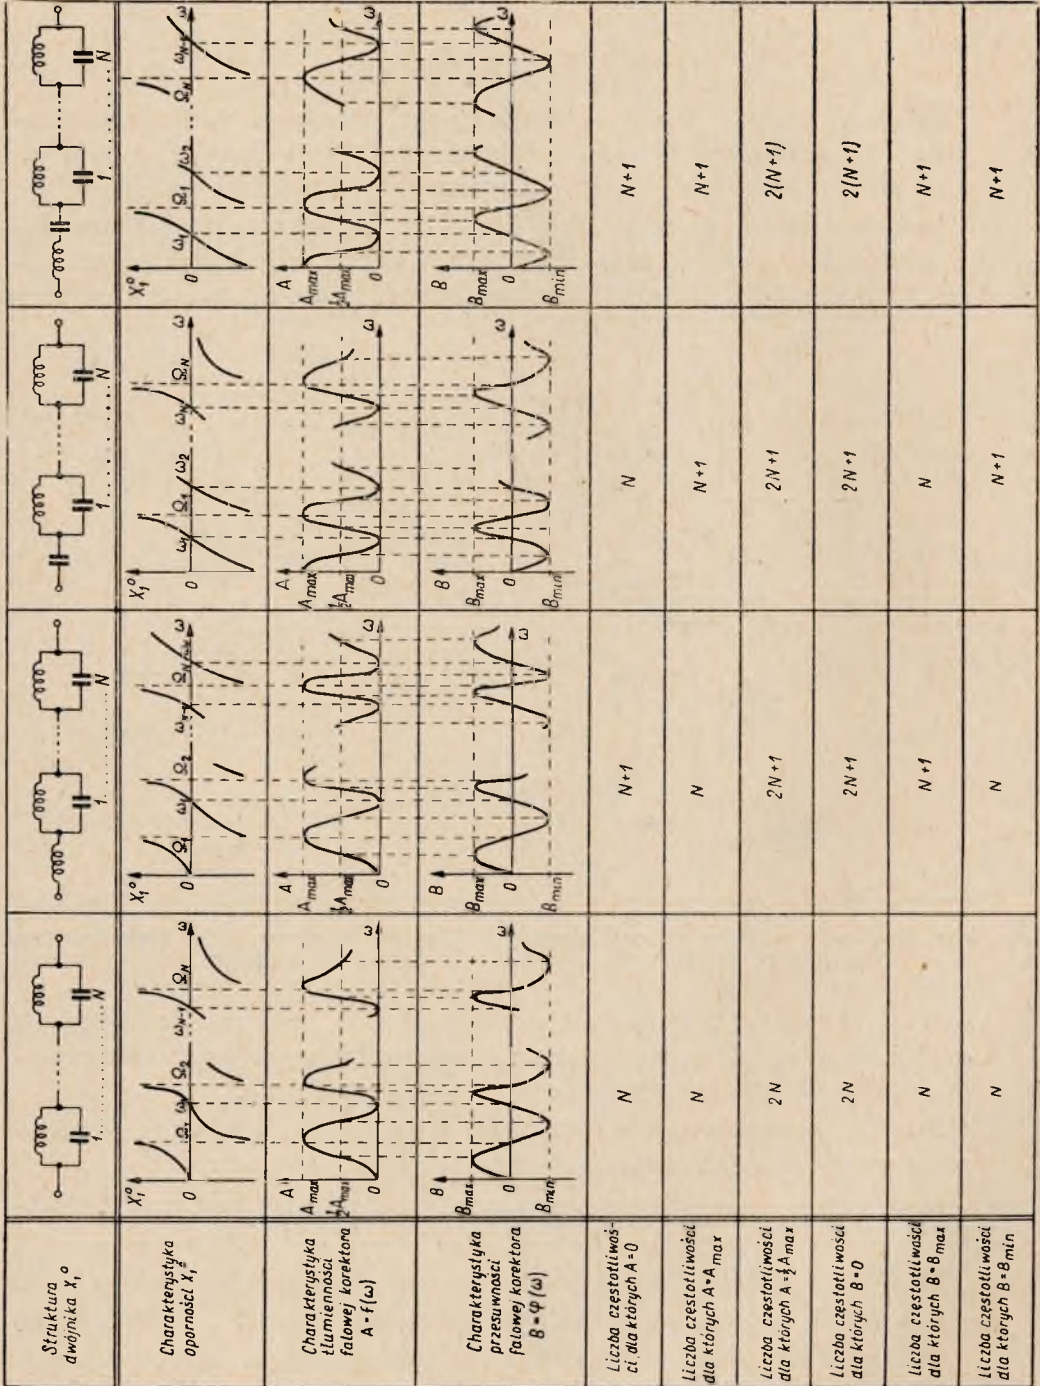 Struktura
dwójnika X₁°
1.
N
1.
N
1.
N
1.
N
Charakterystyka
oporności X₁°
X₁°
0
Ω₁
Ω₂
ω
X₁°
0
Ω₁
ω₁
Ω₂
ω
X₁°
0
ω₁
Ω₁
ω₂
ω_N
Ω_N
ω
X₁°
0
ω₁
Ω₁
ω₂
Ω_N
ω_N+1
ω
Charakterystyka
tłumienności
falowej korektora
A = f(ω)
A
A max
½A max
0
ω
A
A max
½A max
0
ω
A
A max
½A max
0
ω
A
A max
½A max
0
ω
Charakterystyka
przesuwności
falowej korektora
B = φ(ω)
B
B max
0
B min
ω
B
B max
0
B min
ω
B
B max
0
B min
ω
B
B max
0
B min
ω
Liczba częstotliwoś-
ci dla których A=0
N
N+1
N
N+1
Liczba częstotliwości
dla których A=A max
N
N
N+1
N+1
Liczba częstotliwości
dla których A=½A max
2N
2N+1
2N+1
2(N+1)
Liczba częstotliwości
dla których B=0
2N
2N+1
2N+1
2(N+1)
Liczba częstotliwości
dla których B=B max
N
N+1
N
N+1
Liczba częstotliwości
dla których B=B min
N
N
N+1
N+1